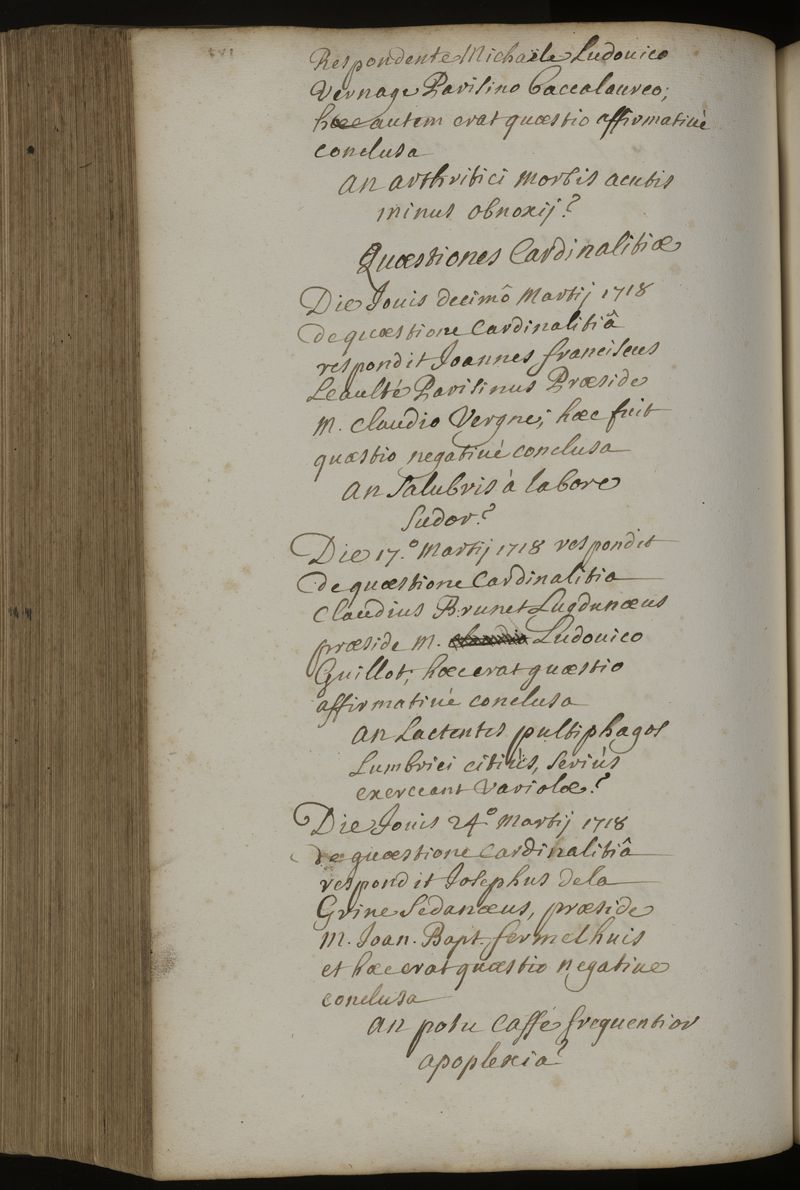 Respondente Michaële Ludovico
Vernage Parisino baccalaureo;
hæc autem erat quæstio affirmativè
conclusa
an arthritici morbis acutis
minus obnoxij?
Quæstiones Cardinalitiæ
Die Jovis decimô Martij 1718
de quæstione Cardinalitiâ
respondit Joannes franciscus
Leaulté Parisinus Præside
M. Claudio Vergne; hæc fuit
quæstio negativè conclusa
an Salubris à labore
Sudor?
Die 17.º Martij 1718 respondit
de quæstione Cardinalitia
Claudius Brunet Lugdunæus
præside M. Ludovico
Guillot; hæc erat quæstio
affirmativè conclusa
an Lactentes pultiphagos
Lumbrici citiùs, seriùs
exerceant Variolæ?
Die Jovis 24.º Martij 1718
de quæstione Cardinalitiâ
respondit Josephus de la
Grine Sedanæus, præside
M. Joan. Bapt. fermelhuis
et hæc erat quæstio negative
conclusa
an potu Caffé frequentior
apoplexia?